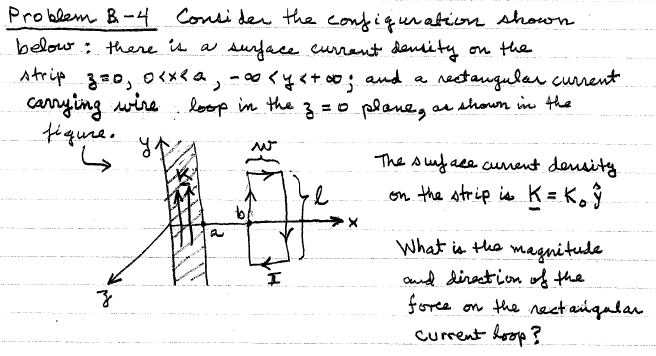 Problem B-4 Consider the configuration shown
below: there is a surface current density on the
strip z=0, 0<x<a, -∞<y<+∞; and a rectangular current
carrying wire loop in the z=0 plane, as shown in the
figure.
y
w
K
l
b
a
x
I
z
The surface current density
on the strip is K = K₀ ŷ
What is the magnitude
and direction of the
force on the rectangular
current loop?